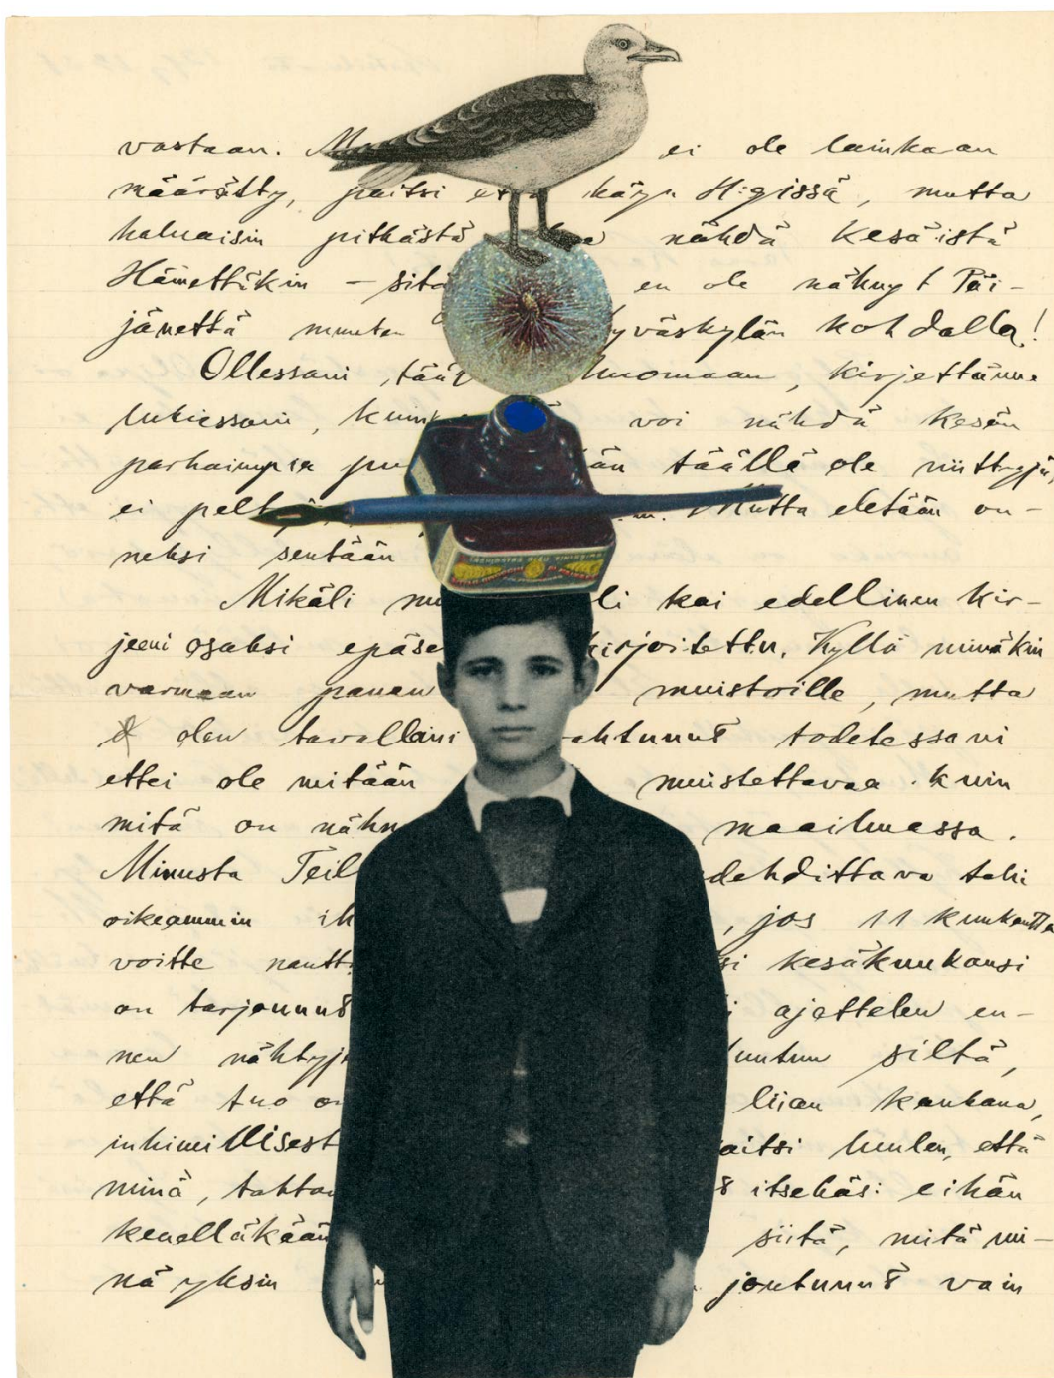 vastaan. ei ole lainkaan
määrätty, paitsi käyn H:gissä, mutta
haluaisin pitkästä nähdä kesäistä
Hämettäkin – sitä en ole nähnyt Päi-
jänettä muuten yväskylän kohdalla!
Ollessani tääl huomaan, kirjettänne
lukiessani, kuink voi nähdä kesän
parhaimpia pu än täällä ole niittyjä,
ei pelt Mutta eletään on-
neksi sentään
Mikäli mu li kai edellinen kir-
jeeni osaksi epäse kirjoitettu. Kyllä minäkin
varmaan panen muistoille, mutta
olen tavallani ahtunut todetessani
ettei ole mitään muistettavaa kuin
mitä on nähn maailmassa.
Minusta Teil dehdittava tahi
oikeammin ih , jos 11 kuukautta
voitte nautt si kesäkuukausi
on tarjonnut i ajattelen en-
nen nähtyj tuntuu siltä,
että tuo on liian kaukana,
inhimillisest aitsi luulen, että
minä, tahto itsekäs: eihän
kenelläkään siitä, mitä mi-
nä yksin joutunut vain